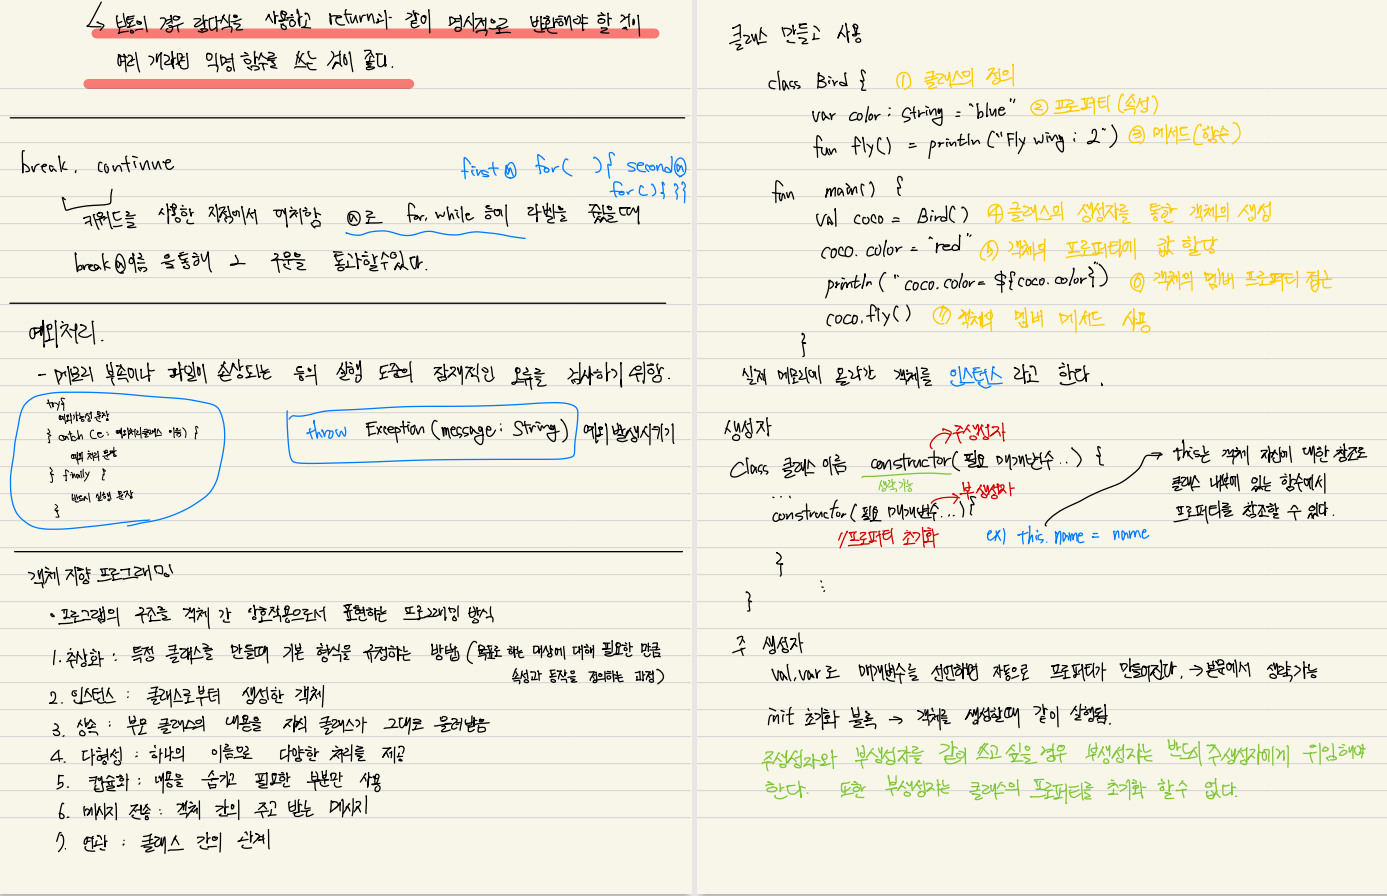 ↳ 보통의 경우 람다식을 사용하고 return과 같이 명시적으로 반환해야 할 것이
여러 개라면 익명 함수를 쓰는 것이 좋다.
break, continue
first@ for( ){ second@
for( ){ }}
키워드를 사용한 지점에서 대치함 @로 for, while 등에 라벨을 줬을때
break@이름 을 통해 그 구문을 통과할수있다.
예외처리.
- 메모리 부족이나 파일이 손상되는 등의 실행 도중의 잠재적인 오류를 검사하기 위함.
try{
예외가능성 문장
} catch (e: 예외처리클래스 이름) {
예외 처리 문장
} finally {
반드시 실행 문장
}
throw Exception (message: String) 예외 발생시키기
객체 지향 프로그래밍
• 프로그램의 구조를 객체 간 상호작용으로서 표현하는 프로그래밍 방식
1. 추상화 : 특정 클래스를 만들때 기본 형식을 규정하는 방법 (목표로 하는 대상에 대해 필요한 만큼
속성과 동작을 정의하는 과정)
2. 인스턴스 : 클래스로부터 생성한 객체
3. 상속 : 부모 클래스의 내용을 자식 클래스가 그대로 물려받음
4. 다형성 : 하나의 이름으로 다양한 처리를 제공
5. 캡슐화 : 내용을 숨기고 필요한 부분만 사용
6. 메시지 전송 : 객체 간의 주고 받는 메시지
7. 연관 : 클래스 간의 관계
클래스 만들고 사용
class Bird { ① 클래스의 정의
var color : String = "blue" ② 프로퍼티 (속성)
fun fly() = println ("Fly wing : 2") ③ 메서드(함수)
fun main() {
val coco = Bird() ④ 클래스의 생성자를 통한 객체의 생성
coco.color = "red" ⑤ 객체의 프로퍼티에 값 할당
println ("coco.color= ${coco.color}") ⑥ 객체의 멤버 프로퍼티 접근
coco.fly() ⑦ 객체의 멤버 메서드 사용
}
실제 메모리에 올라간 객체를 인스턴스 라고 한다.
생성자
→주생성자
Class 클래스이름 constructor( 필요 매개변수..) {
생략가능
...
→ 부생성자
constructor( 필요 매개변수...) {
//프로퍼티 초기화
}
⋮
}
→ this는 객체 자신에 대한 참조로
클래스 내부에 있는 함수에서
프로퍼티를 참조할 수 있다.
ex) this.name = name
주 생성자
val, var로 매개변수를 선언하면 자동으로 프로퍼티가 만들어진다. → 본문에서 생략가능
init 초기화 블록 → 객체를 생성할때 같이 실행됨.
주생성자와 부생성자를 같이 쓰고 싶을 경우 부생성자는 반드시 주생성자에게 위임해야
한다. 또한 부생성자는 클래스의 프로퍼티를 초기화 할수 없다.